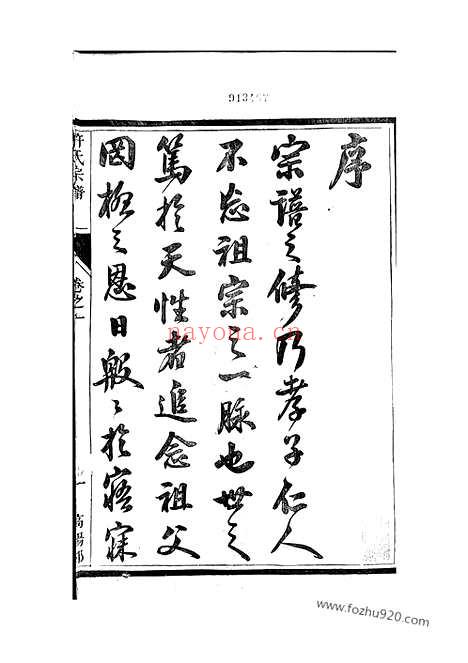 913467
序
宗譜之修乃孝子仁人
不忘祖宗之一脉也世之
篤於天性者追念祖父
罔極之恩日殷殷於寤寐
許氏宗譜
卷之一
一
高陽郡
nayona.cn
www.fozhu920.com